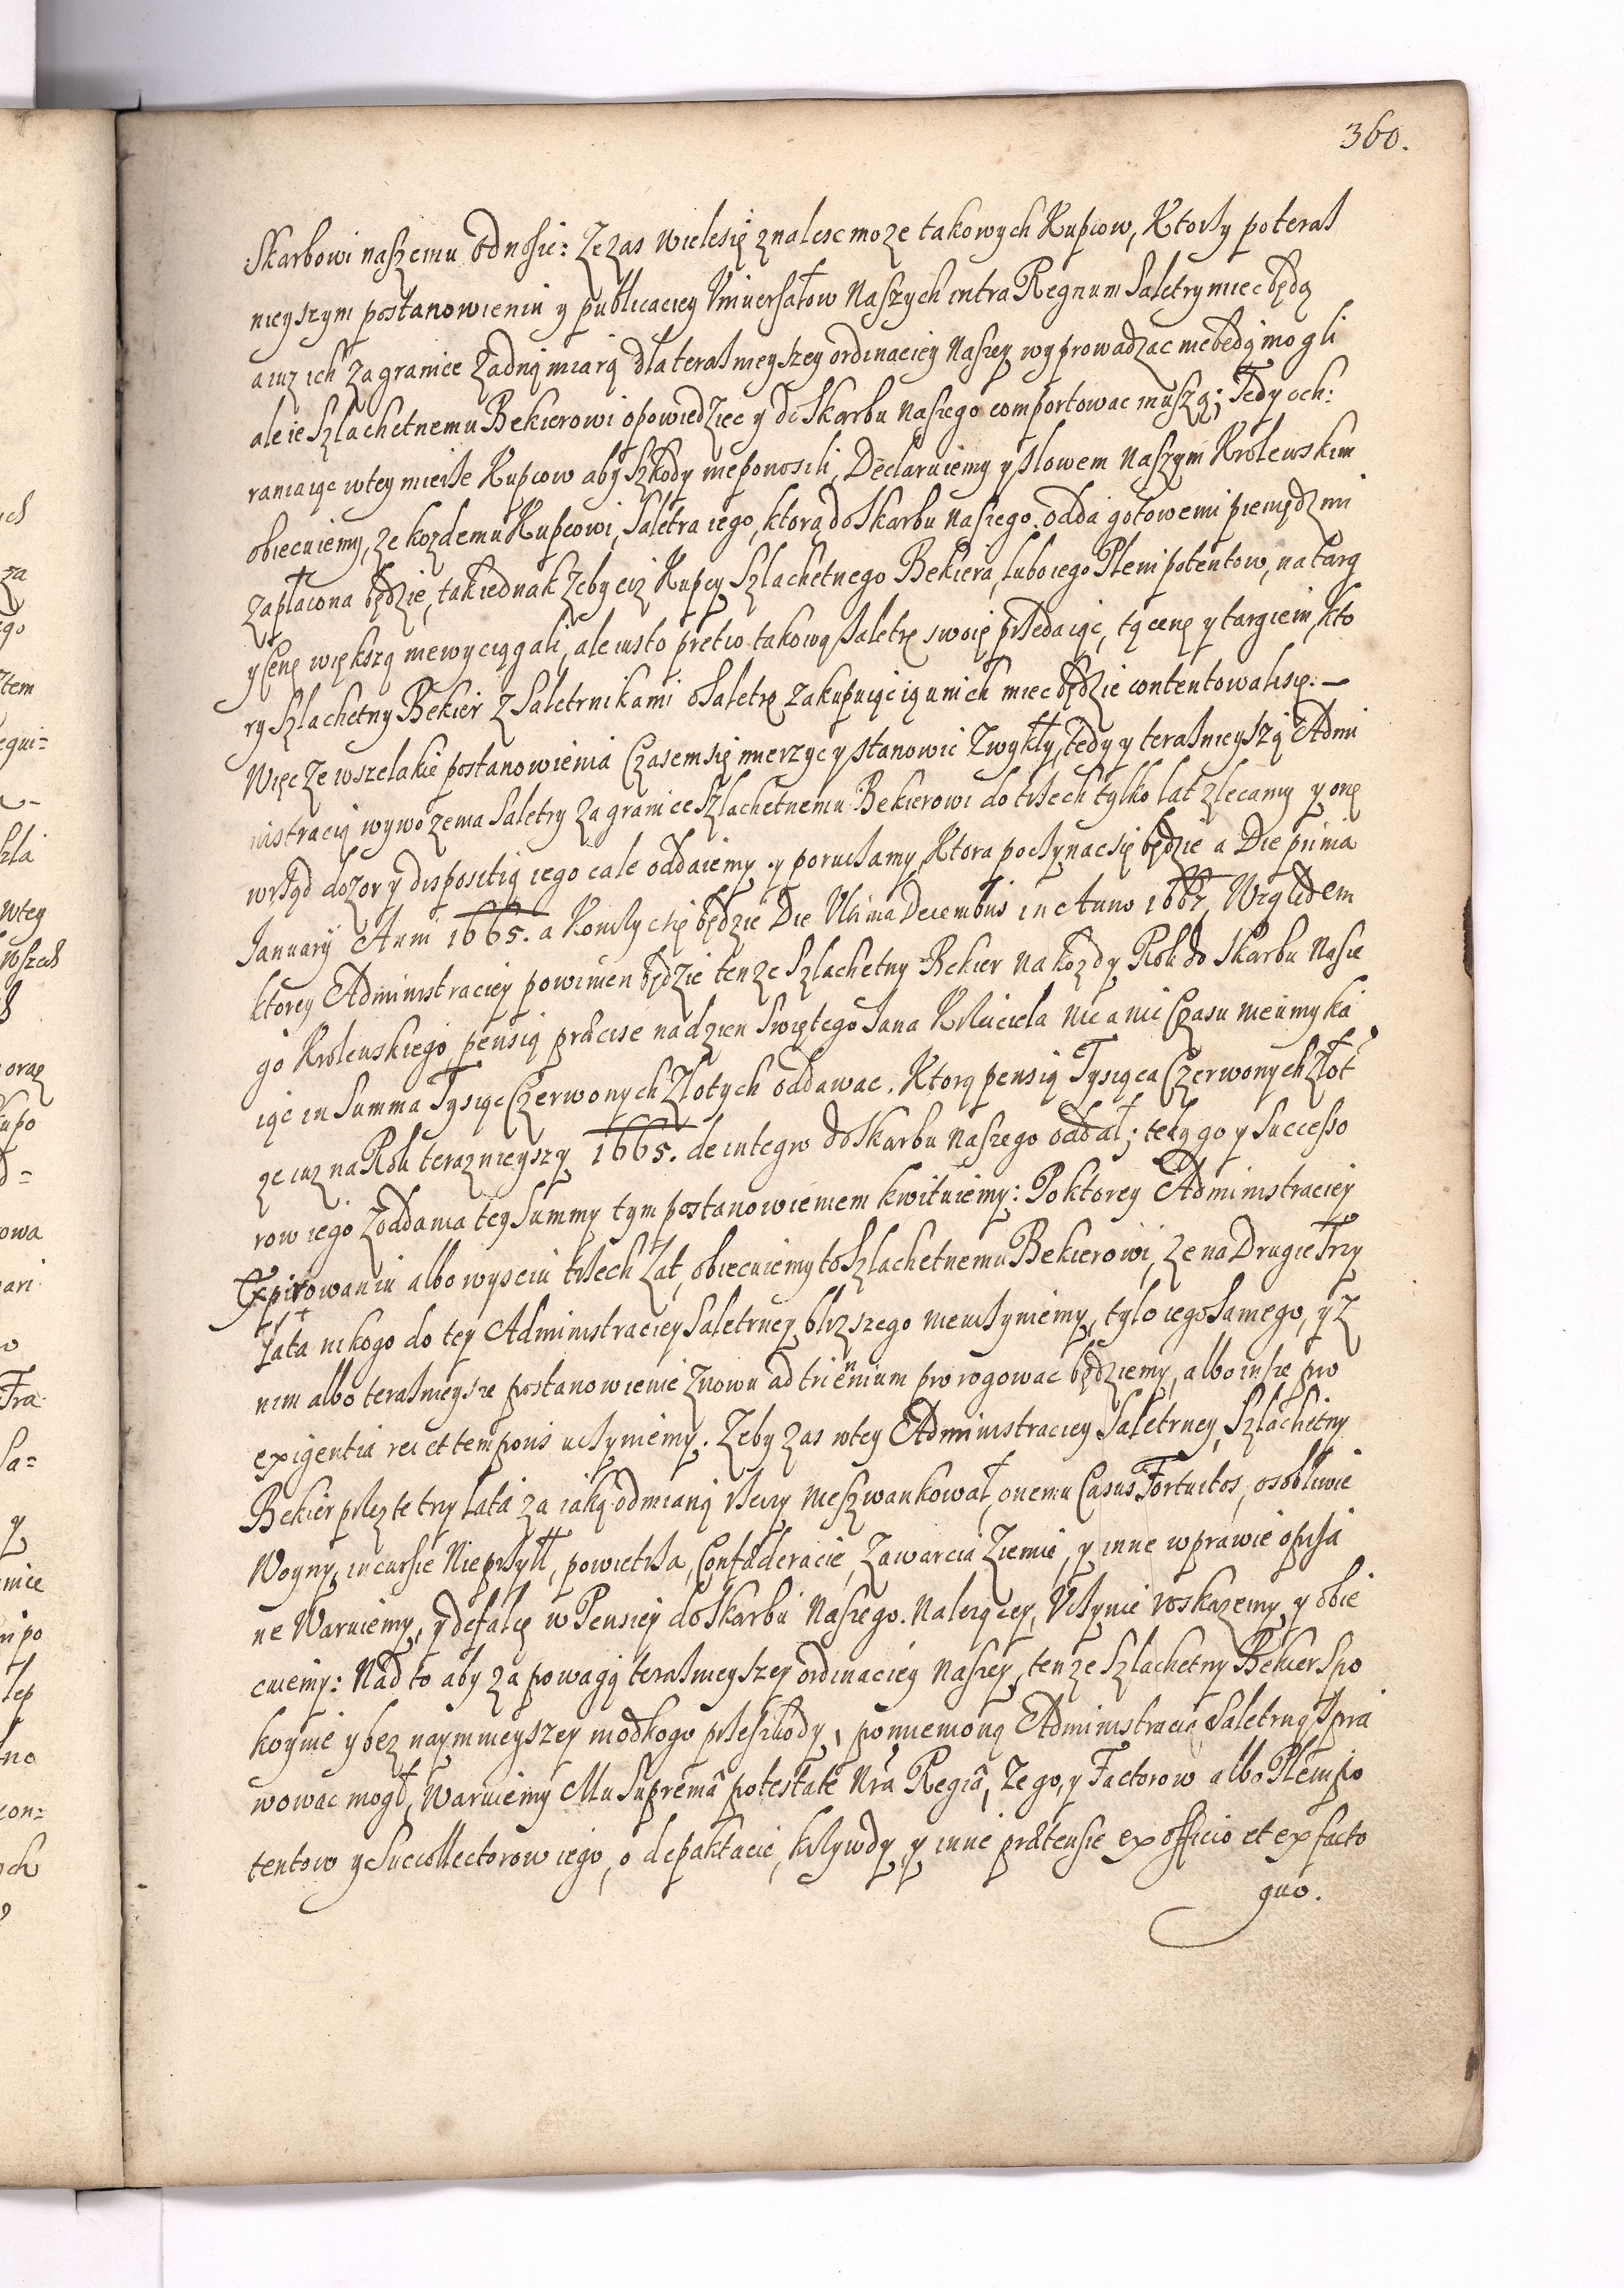 360.
Skarbowi naszemu odnosić: Ze zas wiele się znalesc moze takowych Kupcow, Ktorzy po teraz
nieyszym postanowieniu y publicaciey Vniuersałow Naszych intra Regnum Saletry miec będą
a iuz ich za granice zadną miarą dla teraznieyszey ordinaciey Naszey wyprowadzac niebędą mogli
ale ie Szlachetnemu Bekierowi opowiedziec y do Skarbu naszego comportowac muszą; Tedy och:
raniaiąc w tey mierze Kupcow aby szkody nieponosili, Declaruiemy y słowem naszym Krolewskim
obiecuiemy, ze kozdemu Kupcowi, Saletra iego, ktorą do Skarbu naszego odda gotowemi pieniędzmi
zapłacona będzie, tak iednak zeby ciz Kupcy Szlachetnego Bekiera, lubo iego Plenipotentow, na targ
y cenę większą niewyciągali, ale iusto pretio takową saletrę swoię przedaiąc, tą ceną y targiem, kto
ry Szlachetny Bekier z Saletrnikami o Saletrę zakupuiąc ią u nich miec będzie contentowali się. —
Więc ze wszelakie postanowienia czasem się mierzyc y stanowic zwykły, tedy y teraznieyszą Admi
nistracią wywozenia Saletry za granice Szlachetnemu Bekierowi do trzech tylko lat zlecamy y onę
w rząd dozor y dispositią iego cale oddaiemy y poruczamy, Ktora poczynac się będzie a Die prima
January Anni 1665. a konczyc się będzie Die Vltima Decembris in Anno 1667. Względem
ktorey Administraciey powinien będzie tenze Szlachetny Bekier na kozdy Rok do Skarbu Nasze
go Krolewskiego pensią præcise na dzien Swiętego Jana Krzciciela nic a nic czasu nieumyka
iąc in Summa Tysiąc Czerwonych Złotych oddawac. Ktorą pensią Tysiąca Czerwonych Złot
ze iuz na Rok teraznieyszy 1665. de integro do Skarbu naszego oddał; tedy go y Successo
row iego z oddania tey Summy tym postanowieniem kwituiemy: Po ktorey Administraciey
Expirowaniu albo wysciu trzech Lat, obiecuiemy to Szlachetnemu Bekierowi, ze na Drugie Trzy
Lata nikogo do tey Administraciey Saletrney blizszego nieuczyniemy, tylo iego samego, y z
nim albo teraznieysze postanowienie znowu ad triennium prorogowac będziemy, albo insze pro
exigentia rei et temporis uczyniemy. Zeby zas w tey Administraciey Saletrney, Szlachetny
Bekier przez te trzy lata za iaką odmianą rzeczy nieszwankował, onemu Casus Fortuitos, osobliwie
Woyny, incursie Nieprzyłł, powietrza, Confœderacie, zawarcia Ziemie, y inne w prawie opisa
ne Waruiemy, y defalcę w Pensiey do Skarbu Naszego Nalezącey, Vczynic roskazemy y obie
cuiemy: Nad to aby za powagą teraznieyszey ordinaciey Naszey, tenze Szlachetny Bekier spo
koynie y bez naymnieyszey niodkogo przeszkody, pomienioną Administracią Saletrną spra
wowac mogł, Waruiemy Mu Supremâ potestate Nrã Regiâ, Ze go, y Factorow albo Plenipo
tentow y Succollectorow iego, o depaktacie, krzywdy, y inne prætensie ex officio et ex facto
quo.